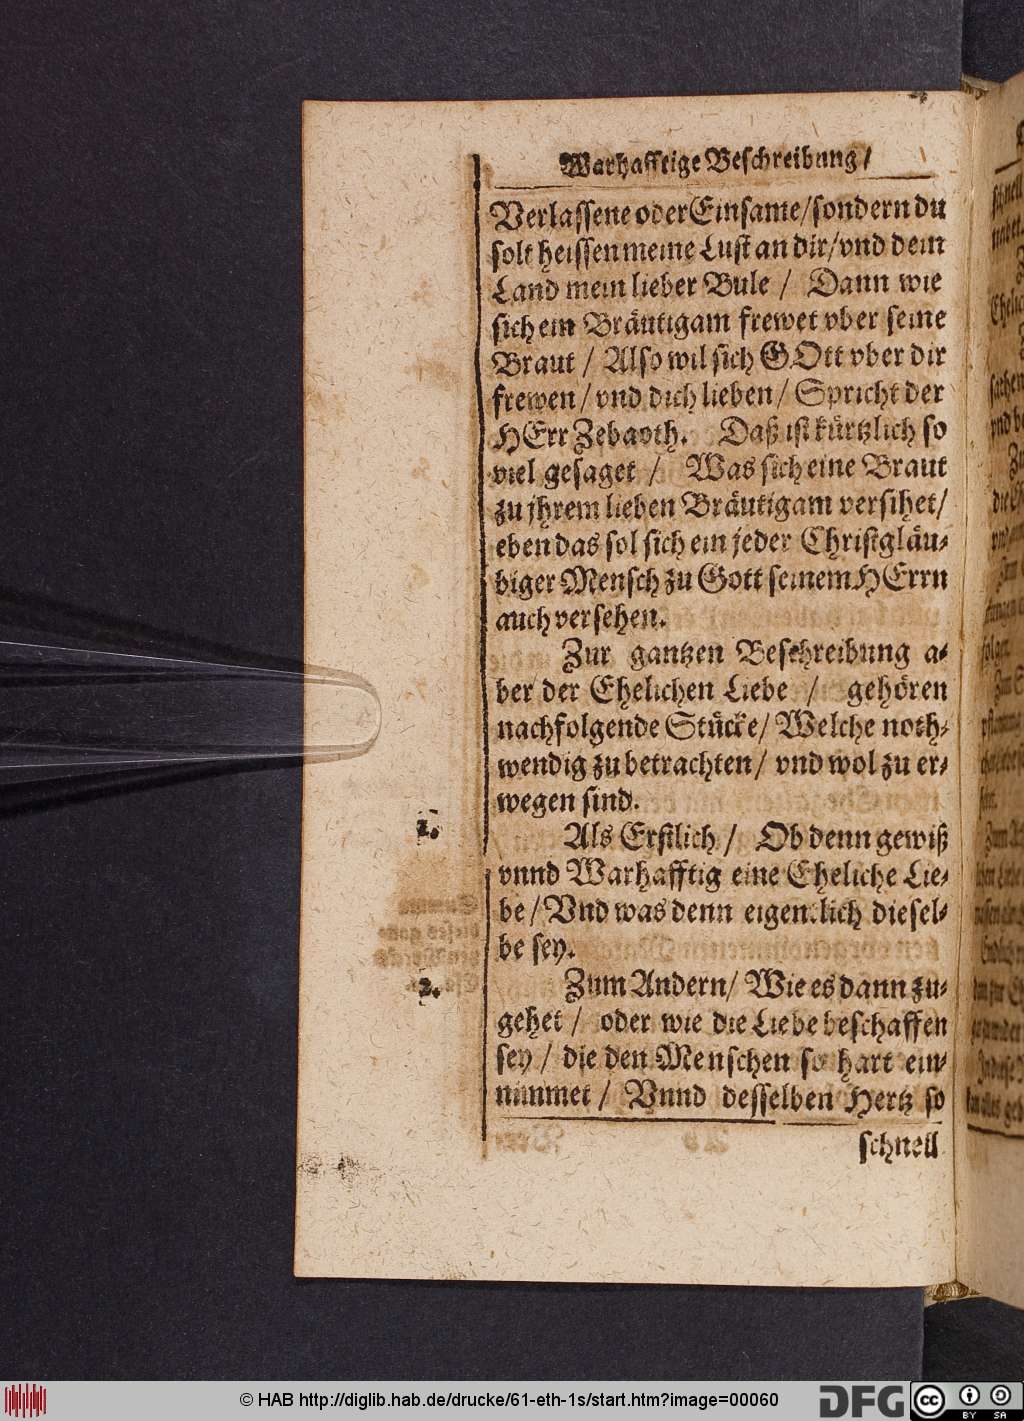 Warhafftige Beschreibung /
Verlassene oder Einsame / sondern du
solt heissen meine Lust an dir / vnd dein
Land mein lieber Bule / Dann wie
sich ein Bräutigam frewet vber seine
Braut / Also wil sich GOtt vber dir
frewen / vnd dich lieben / Spricht der
HErr Zebaoth. Daß ist kürtzlich so
viel gesaget / Was sich eine Braut
zu jhrem lieben Bräutigam versihet /
eben das sol sich ein jeder Christgläu-
biger Mensch zu Gott seinem HErrn
auch versehen.
Zur gantzen Beschreibung a-
ber der Ehelichen Liebe / gehören
nachfolgende Stücke / Welche noth-
wendig zu betrachten / vnd wol zu er-
wegen sind.
1.
Als Erstlich / Ob denn gewiß
vnnd Warhafftig eine Eheliche Lie-
be / Vnd was denn eigentlich diesel-
be sey.
2.
Zum Andern / Wie es dann zu-
gehet / oder wie die Liebe beschaffen
sey / die den Menschen so hart ein-
nimmet / Vnnd desselben Hertz so
schnell
© HAB http://diglib.hab.de/drucke/61-eth-1s/start.htm?image=00060
DFG
cc
BY SA